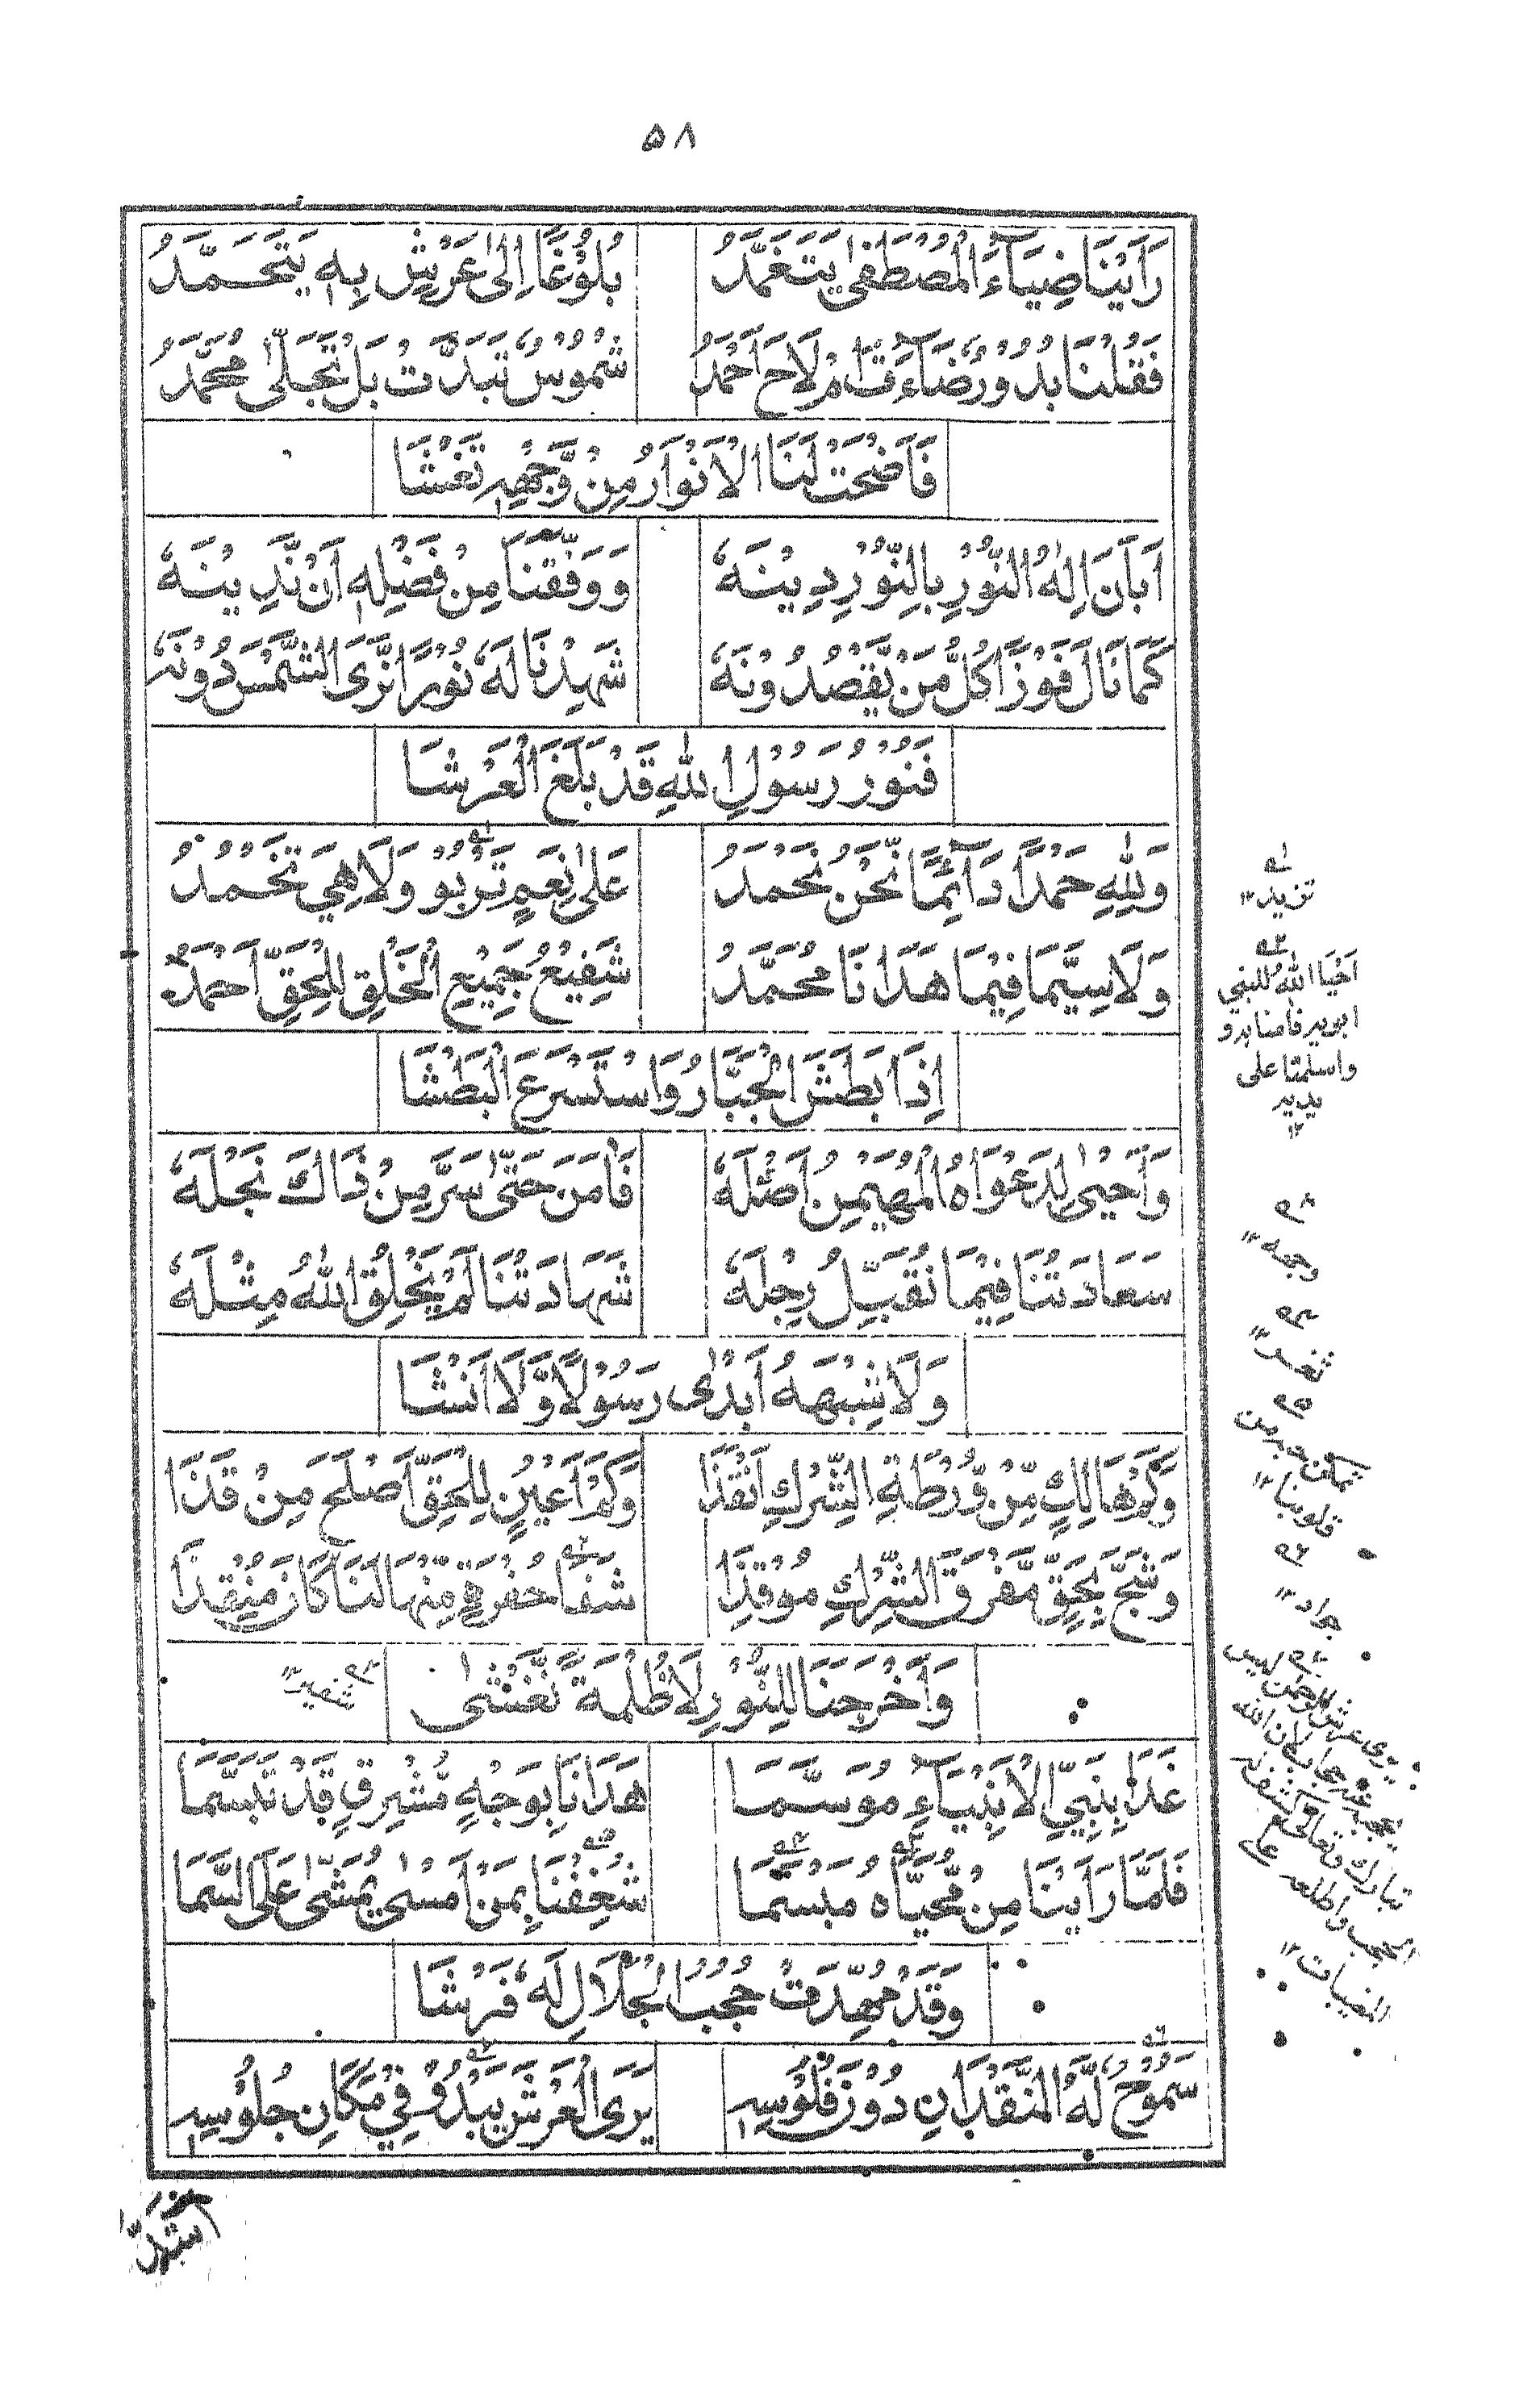 ۵۸
رَأَيْنَا ضِيَاءَ الْمُصْطَفٰى يَتَغَمَّدُ بُلُوْغًا اِلٰى عَرْشٍ بِهٖ يَتَحَمَّدُ
فَقُلْنَا بُدُوْرٌ ضَاءَتْ اَمْ لَاحَ اَحْمَدُ شُمُوْسٌ تَبَدَّتْ بَلْ تَجَلّٰى مُحَمَّدُ
فَاَضْحَتْ لَنَا الْاَنْوَارُ مِنْ وَّجْهِهٖ تَغْشَا
اَبَانَ اِلٰهُ النُّوْرِ بِالنُّوْرِ دِيْنَهٗ وَوَفَّقَنَا مِنْ فَضْلِهٖ اَنْ نَّدِيْنَهٗ
كَمَا نَالَ فَوْزًا كُلُّ مَنْ يَّقْصُدُوْنَهٗ شَهِدْنَا لَهٗ نُوْرًا نَّرَى الشَّمْسَ دُوْنَهٗ
فَنُوْرُ رَسُوْلِ اللّٰهِ قَدْ بَلَغَ الْعَرْشَا
وَلِلّٰهِ حَمْدًا دَآئِمًا نَّحْنُ نَحْمَدُ عَلٰى نِعَمٍ تَرْبُوْ وَلَا هِيَ تَخْمُدُ
وَلَا سِيَّمَا فِيْمَا هَدَانَا مُحَمَّدُ شَفِيْعُ جَمِيْعِ الْخَلْقِ لِلْحَقِّ اَحْمَدُ
اِذَا بَطَشَ الْجَبَّارُ وَاسْتَسْرَعَ الْبَطْشَا
وَاَحْيٰى لِدَعْوَاهُ الْمُهَيْمِنُ اَصْلَهٗ فَاٰمَنَ حَتّٰى سَرَّ مِنْ ذَاكَ نَجْلَهٗ
سَعَادَتُنَا فِيْمَا نُقَبِّلُ رِجْلَهٗ شَهَادَتُنَا لَمْ يَخْلُقِ اللّٰهُ مِثْلَهٗ
وَلَا شِبْهَهُ اَبْدٰى رَسُوْلًا وَّلَا اَنْشَا
وَكَمْ هَالِكٍ مِّنْ وَّرْطَةِ الشِّرْكِ اَنْقَذَا وَكَمْ اَعْيُنٍ لِلْحَقِّ اَصْلَحَ مِنْ قَذَا
وَشَجَّ بِحَقٍّ مَّفْرَقَ الشِّرْكِ مُوْقِذَا شَفَا حُفْرَةٍ مِّنْهَا لَنَا كَانَ مُنْقِذَا
وَاَخْرَجَنَا لِلنُّوْرِ لَا ظُلْمَةً نَّغْشٰى
شفير
غَدَا بِنَبِيِّ الْاَنْبِيَاءِ مُوَسَّمَا هَدَانَا بِوَجْهٍ مُّشْرِقٍ قَدْ تَبَسَّمَا
فَلَمَّا رَاَيْنَا مِنْ مُّحَيَّاهُ مَبْسَمَا شُغِفْنَا بِمَنْ اَمْسٰى يُمَشّٰى عَلَى السَّمَا
وَقَدْ مُهِّدَتْ حُجُبُ الْجَلَالِ لَهٗ فَرْشَا
سَمُوْحٌ لَّهُ النَّقْدَانِ دُوْنَ فُلُوْسِهٖ يَرَى الْعَرْشَ يَبْدُوْ فِيْ مَكَانِ جُلُوْسِهٖ
تزيد ١٢
احيا الله للنبي
ابويه فامنا به و
واسلمتا على
يديه
١٢
وجهه ١٢
ثغر ١٢
تمكن حبه من
قلوبنا ١٢
جواد ١٢
المغيبات ١٢